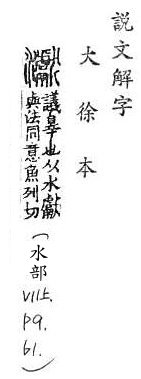 説文解字
大徐本
議辠也从水獻
與法同意魚列切
(水部
VII上.
p9.
61.)